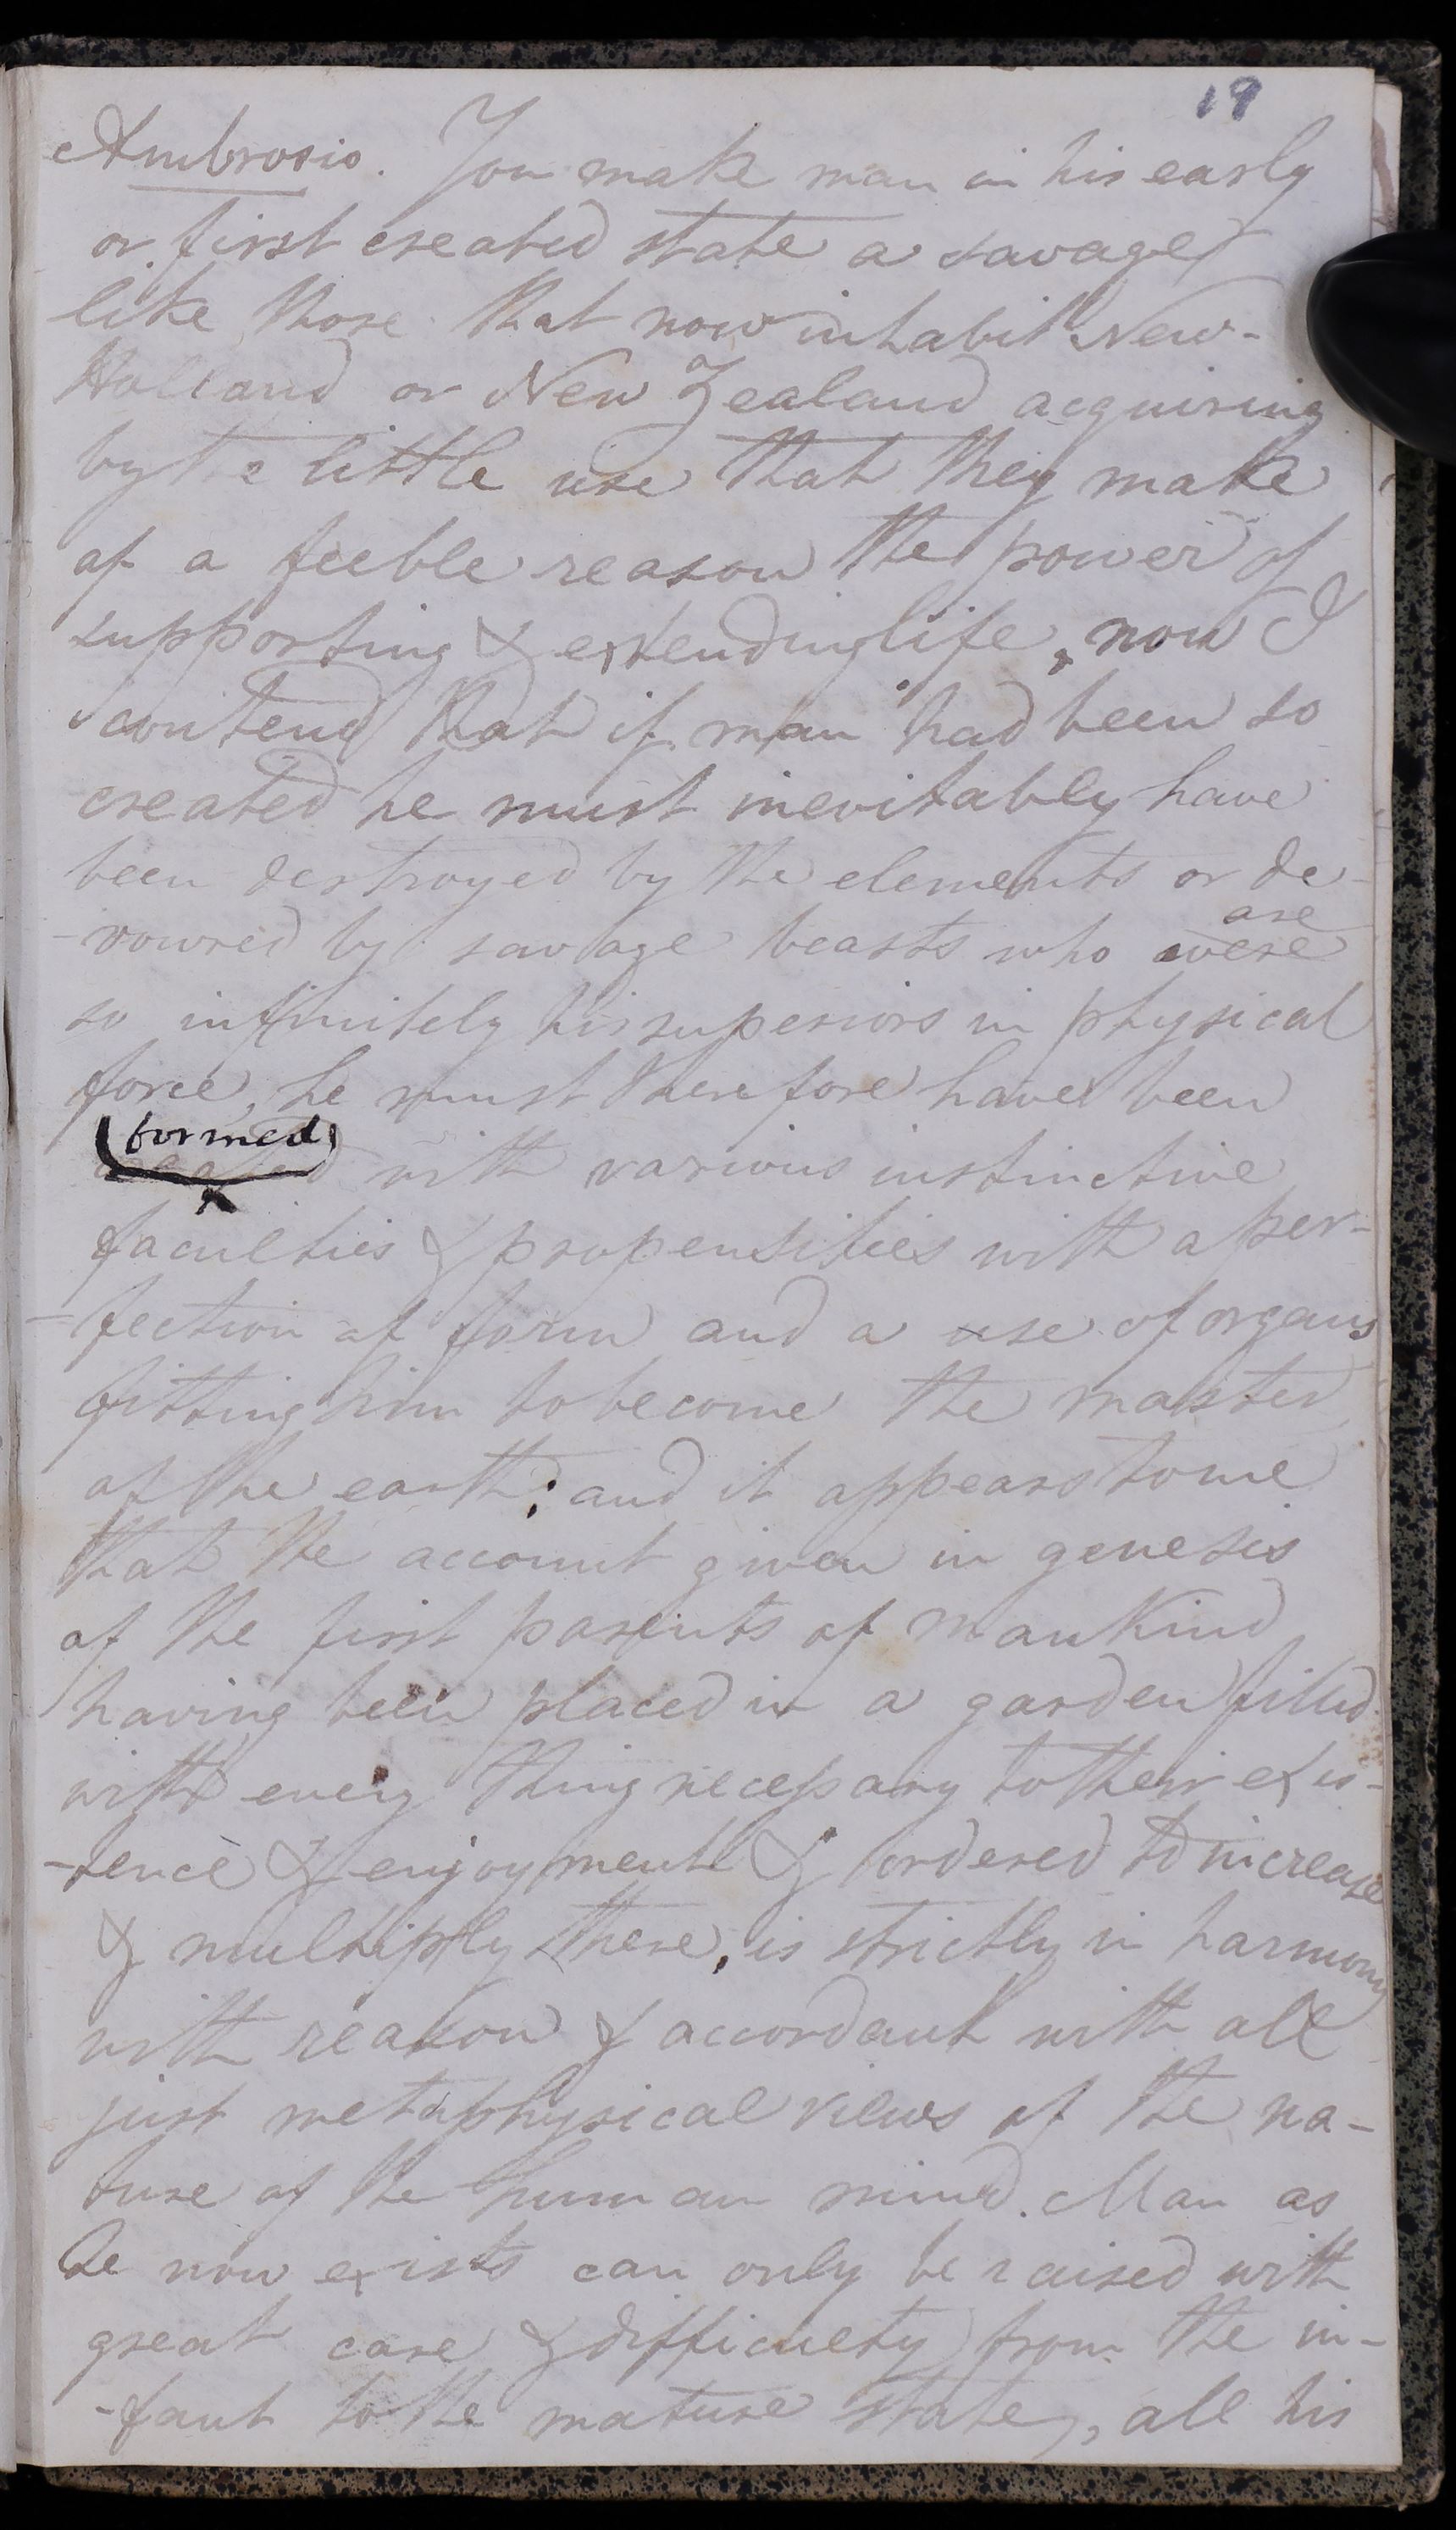 19
Ambrosio. You make man in his early
or first created state a savage
like those that now inhabit New-
Holland or New Zealand acquiring
by the little use that they make
of a feeble reason the power of
supporting & extending life, now I
contend that if man had been so
created he must inevitably have
been destroyed by the elements or de-
are
-voured by savage beasts who were
so infinitely his superiors in physical
force, he must therefore have been
formed
created with various instinctive
faculties & propensities with a per-
-fection of form and a use of organs
fitting him to become the master
of the earth; and it appears to me
that the account given in genesis
of the first parents of mankind
having been placed in a garden filled
with every thing necessary to their exis-
-tence & enjoyment & ordered to increase
& multiply there, is strictly in harmony
with reason & accordant with all
just metaphysical views of the na-
ture of the human mind. Man as
he now exists can only be raised with
great care & difficulty from the in-
-fant to the mature state, all his